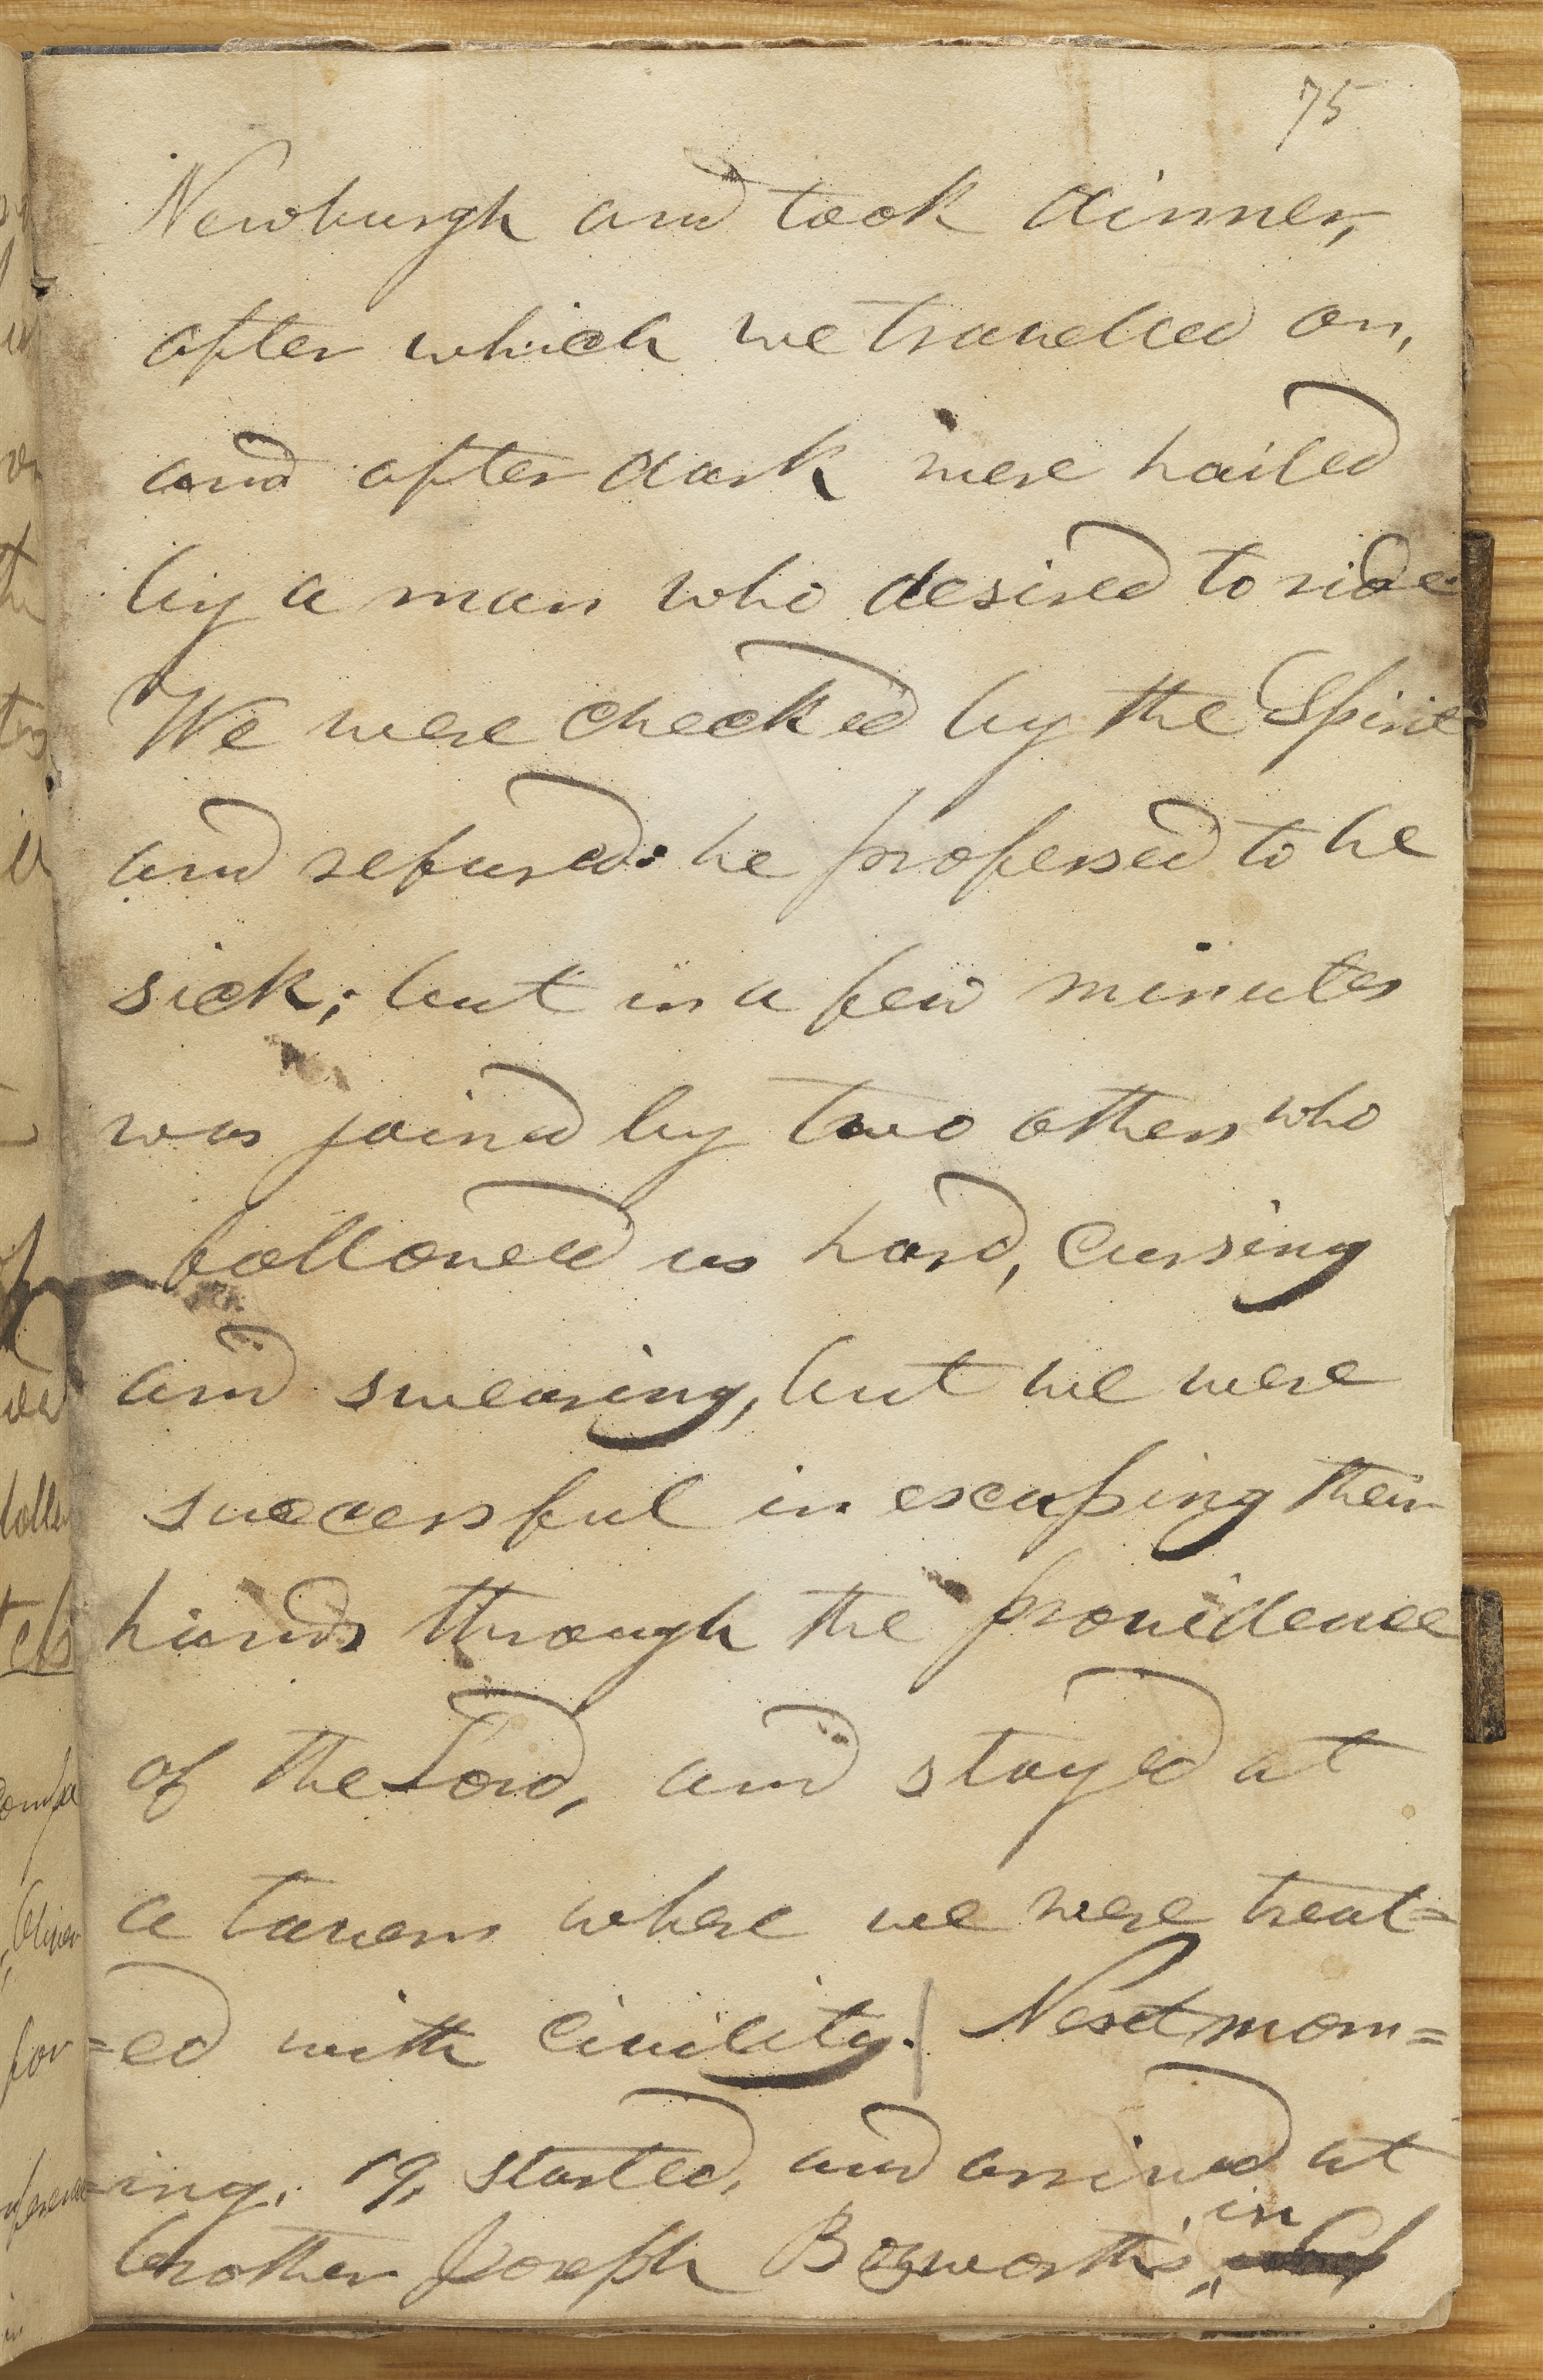 75
Newburgh and took dinner,
after which we travelled on,
and after dark were hailed
by a man who desired to ride.
We were checked by the Spirit
and refused: he professed to be
sick; but in a few minutes
was joined by two others who
followed us hard, cursing
and swearing, but we were
successful in escaping their
hands through the providence
of the Lord, and stayed at
a tavern where we were treat=
=ed with civility. | Next morn=
=ing, 19, started, and arrived at
in
brother Joseph Bozworth's,